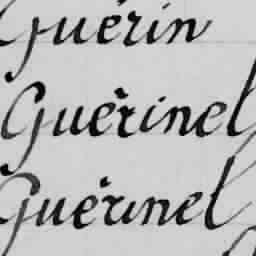 Guérin
Guérinel
Guérinel